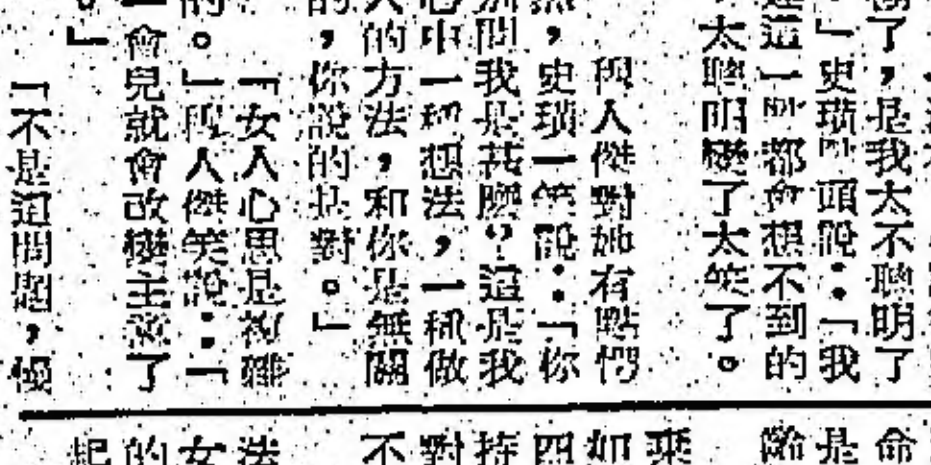 了，是我太不聰明了
」史瑣點頭說：「我
這一點都會想不到的
太聰明變了太笨了。
段人傑對她有點愕
然，史瑣一笑說：「你
別問我是甚麼？這是我
心中一種想法，一種做
人的方法，和你是無關
的，你說的是對。」
「女人心思是複雜
的。」段人傑笑說：「
一會兒就會改變主意了
。」
「不是這問題，優
命
是
險
乘
如
四
持
對
不
法
女
的
起